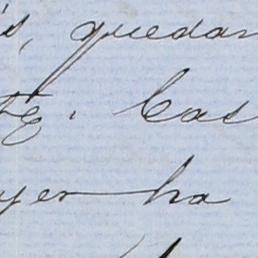 s, quedan
te. Cas
yer ha